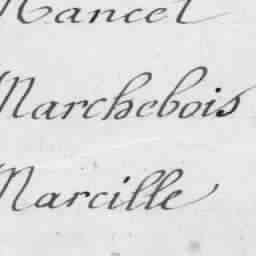 Mancel
Marchebois
Marcille